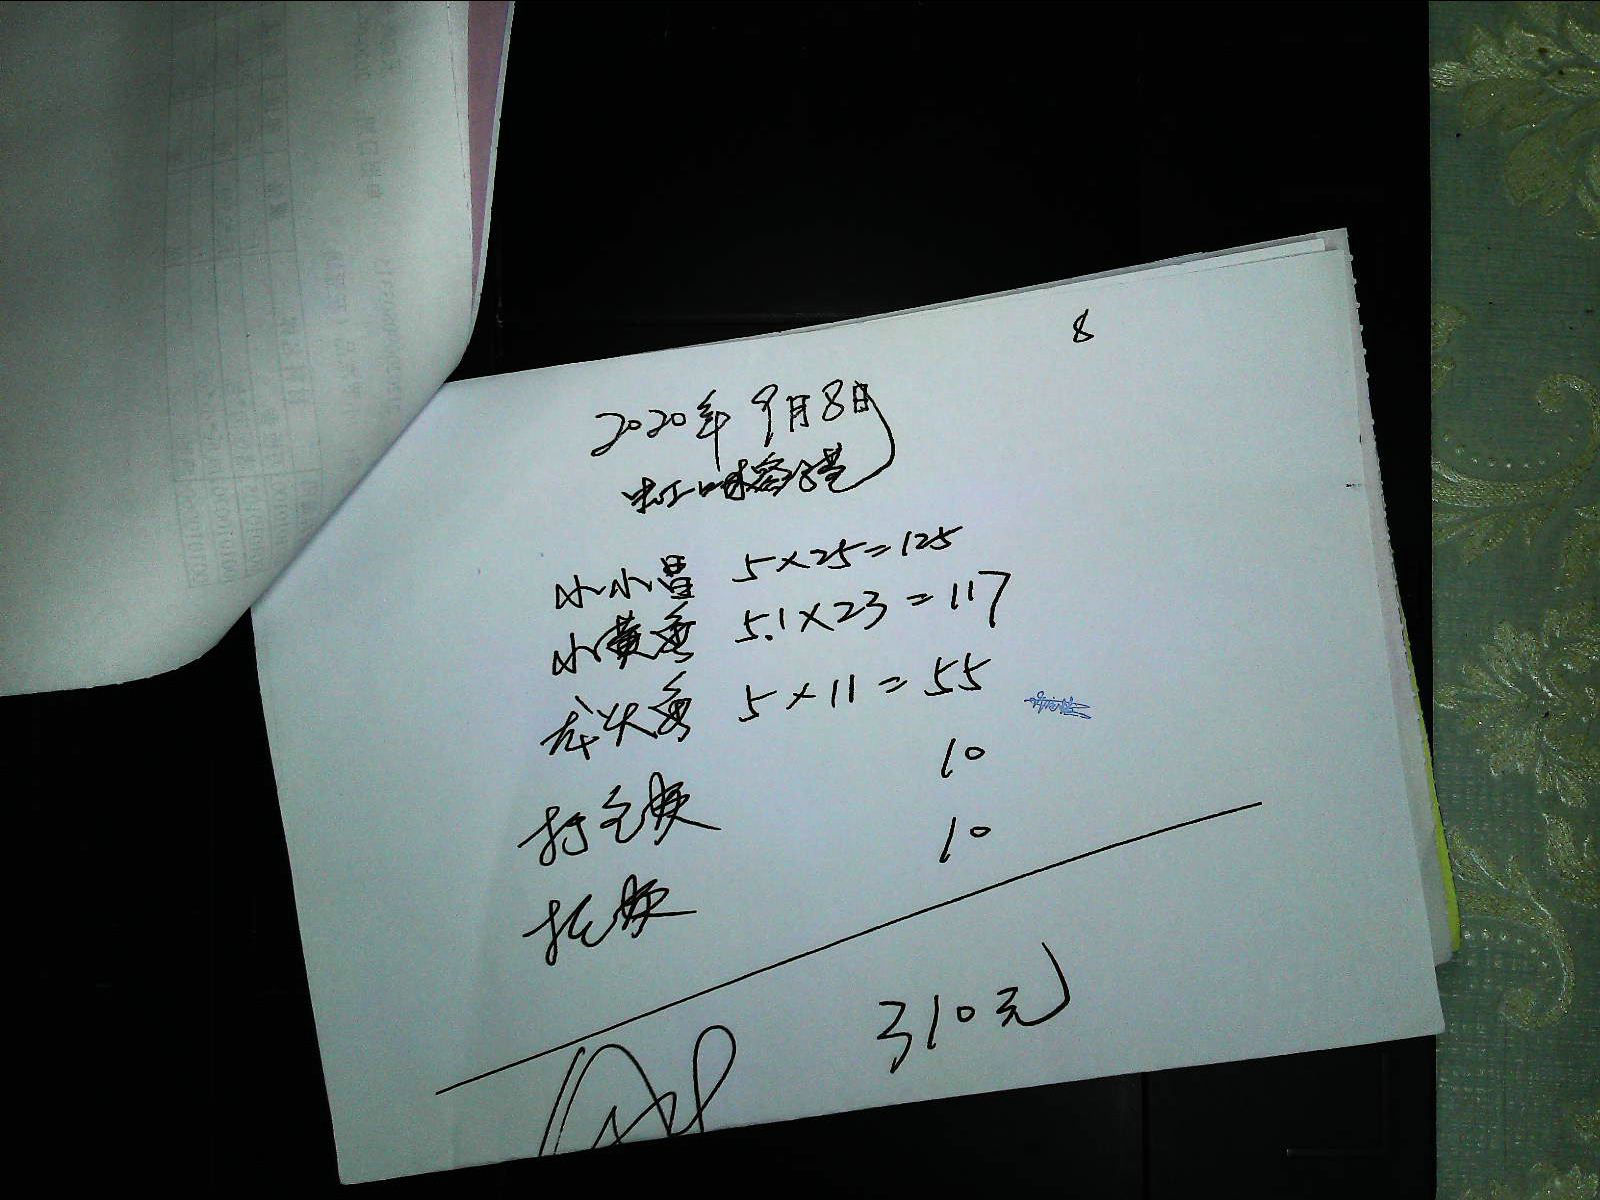 8
2020年9月8日
虾味寄港
小小昌 5×25=125
小黄鱼 5.1×23=117
龙头鱼 5×11=55
打包费 10
托费 10
310元